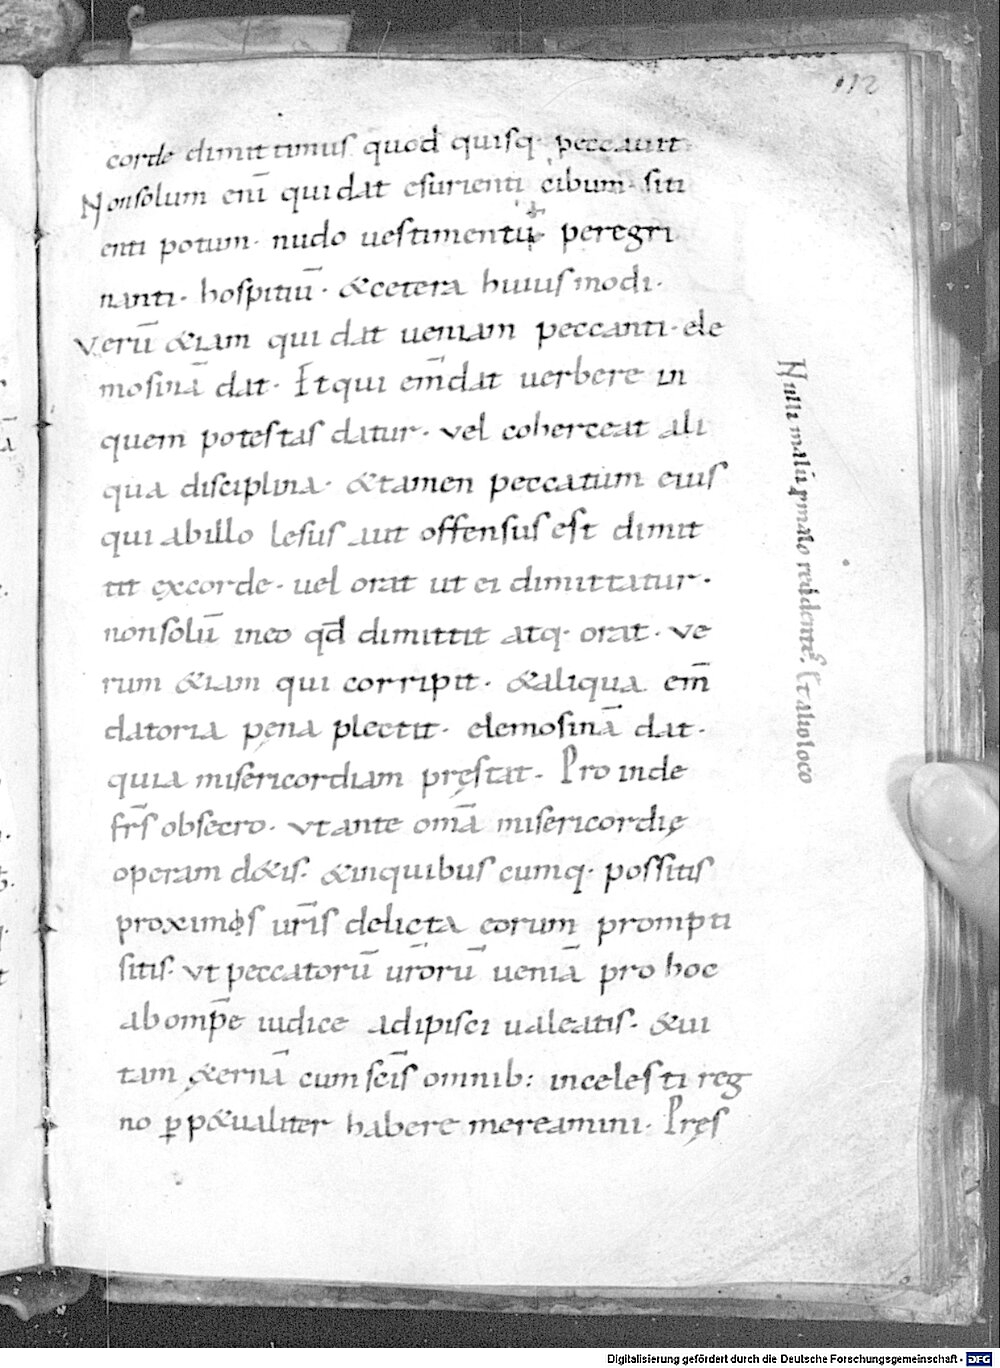 112
corde dimittimus quod quisq· peccauit
Nonsolum enī qui dat esurienti cibum· siti
enti potum· nudo uestimentū· peregri
nanti· hospitiū· &cetera huius modi·
Verū &iam qui dat ueniam peccanti· ele
mosinā dat· Et qui em̄dat uerbere in
quem potestas datur· vel coherceat ali
qua disciplina· &tamen peccatum eius
qui abillo lesus aut offensus est dimit
tit excorde· uel orat ut ei dimittatur·
nonsolū ineo qđ dimittit atq· orat· ve
rum &iam qui corripit· &aliqua em̄
datoria pęna plectit· elemosinā dat·
quia misericordiam pręstat· Pro inde
fr̄s obsecro· vt ante om̄a misericordię
operam d&is· &inquibus cumq· possitis
proximos ur̄is delicta eorum prompti
sitis· vt peccatorū ur̄orū ueniā pro hoc
ab omp̄e iudice adipisci ualeatis· &ui
tam &ernā cum sc̄is omnib: incelesti reg
no ꝑp&ualiter habere mereamini· Pręs
Nulli malū ꝓ malo reddentes. Et alio loco
Digitalisierung gefördert durch die Deutsche Forschungsgemeinschaft - DFG